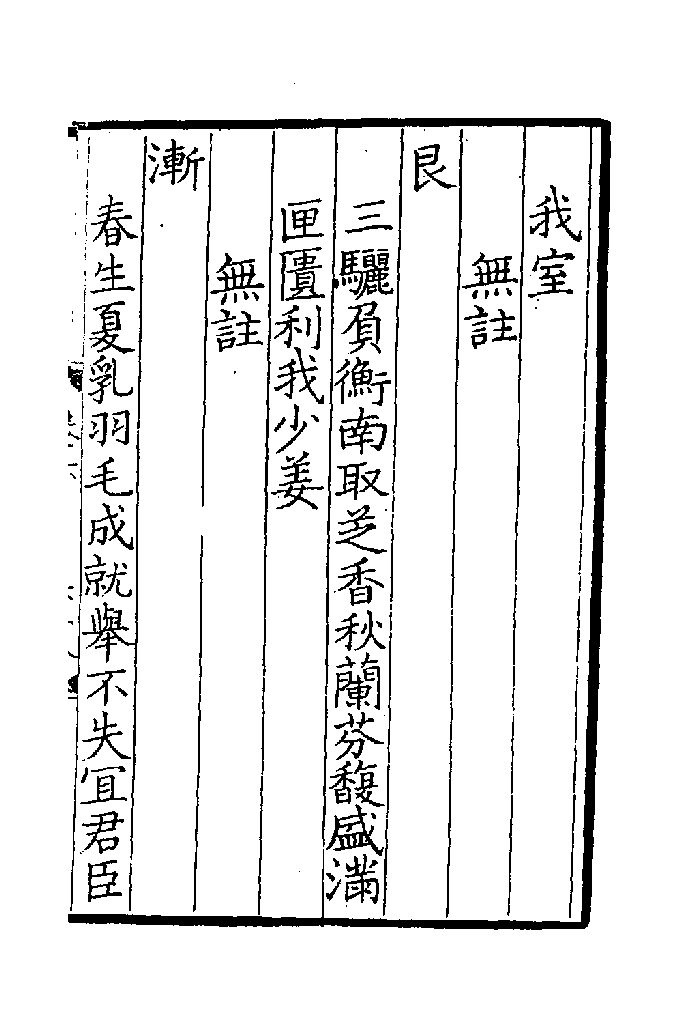 我室
無註
艮
三驪負衡南取芝香秋蘭芬馥盛滿
匣匱利我少姜
無註
漸
春生夏乳羽毛成就舉不失宜君臣